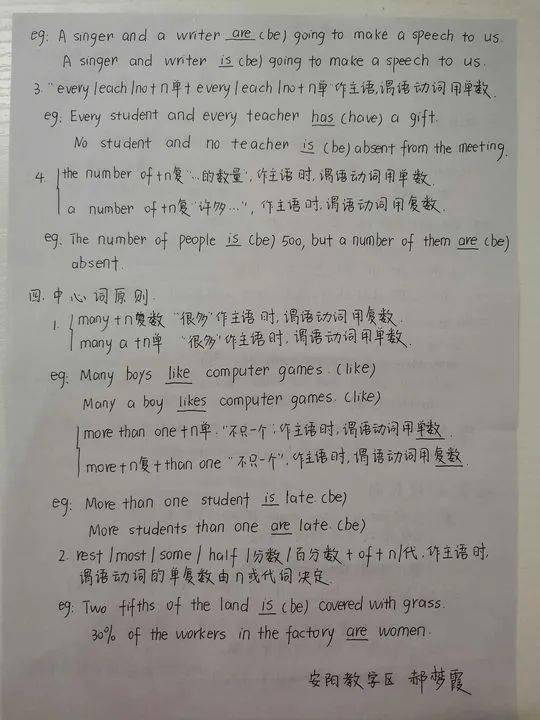 eg: A singer and a writer are (be) going to make a speech to us.
A singer and writer is (be) going to make a speech to us.
3. "every/each/no+n单+every/each/no+n单"作主语,谓语动词用单数.
eg: Every student and every teacher has (have) a gift.
No student and no teacher is (be) absent from the meeting.
4. the number of+n复"…的数量",作主语时,谓语动词用单数.
a number of+n复"许多…",作主语时,谓语动词用复数.
eg: The number of people is (be) 500, but a number of them are (be)
absent.
四. 中心词原则.
1. many+n复数 "很多"作主语时,谓语动词用复数.
many a+n单 "很多"作主语时,谓语动词用单数.
eg: Many boys like computer games. (like)
Many a boy likes computer games. (like)
more than one+n单. "不只一个",作主语时,谓语动词用单数.
more+n复+than one "不只一个",作主语时,谓语动词用复数.
eg: More than one student is late. (be)
More students than one are late. (be)
2. rest/most/some/half/分数/百分数+of+n/代.作主语时,
谓语动词的单复数由n或代词决定.
eg: Two fifths of the land is (be) covered with grass.
30% of the workers in the factory are women.
安阳教学区 郝梦霞